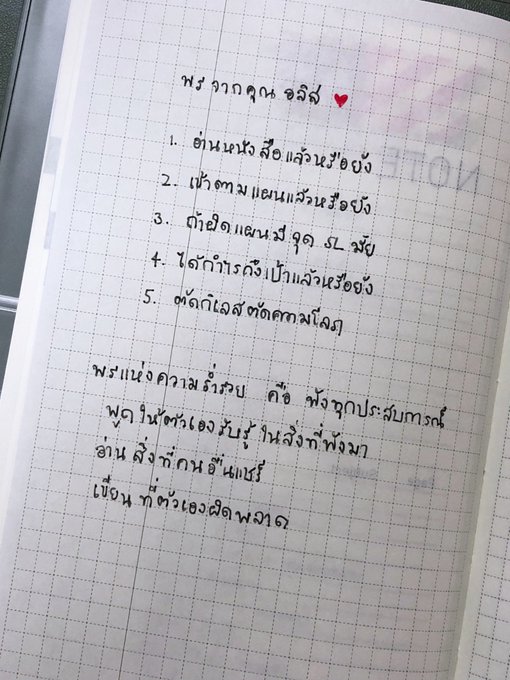 พร จากคุณ อลิส
1. อ่านหนังสือแล้วหรือยัง
2. เข้าตามแผนแล้วหรือยัง
3. ถ้าผิดแผนมีจุด SL มั้ย
4. ได้กำไรถึงเป้าแล้วหรือยัง
5. ตัดกิเลสตัดความโลภ
พรแห่งความร่ำรวย คือ ฟังทุกประสบการณ์
พูดให้ตัวเองรับรู้ ในสิ่งที่ฟังมา
อ่าน สิ่งที่คนอื่นแชร์
เขียน ที่ตัวเองผิดพลาด
NOTE